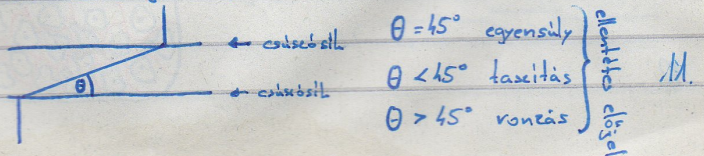 ← csúszósík
θ
← csúszósík
θ = 45° egyensúly
θ < 45° taszítás
θ > 45° vonzás
ellentétes előjel
11.